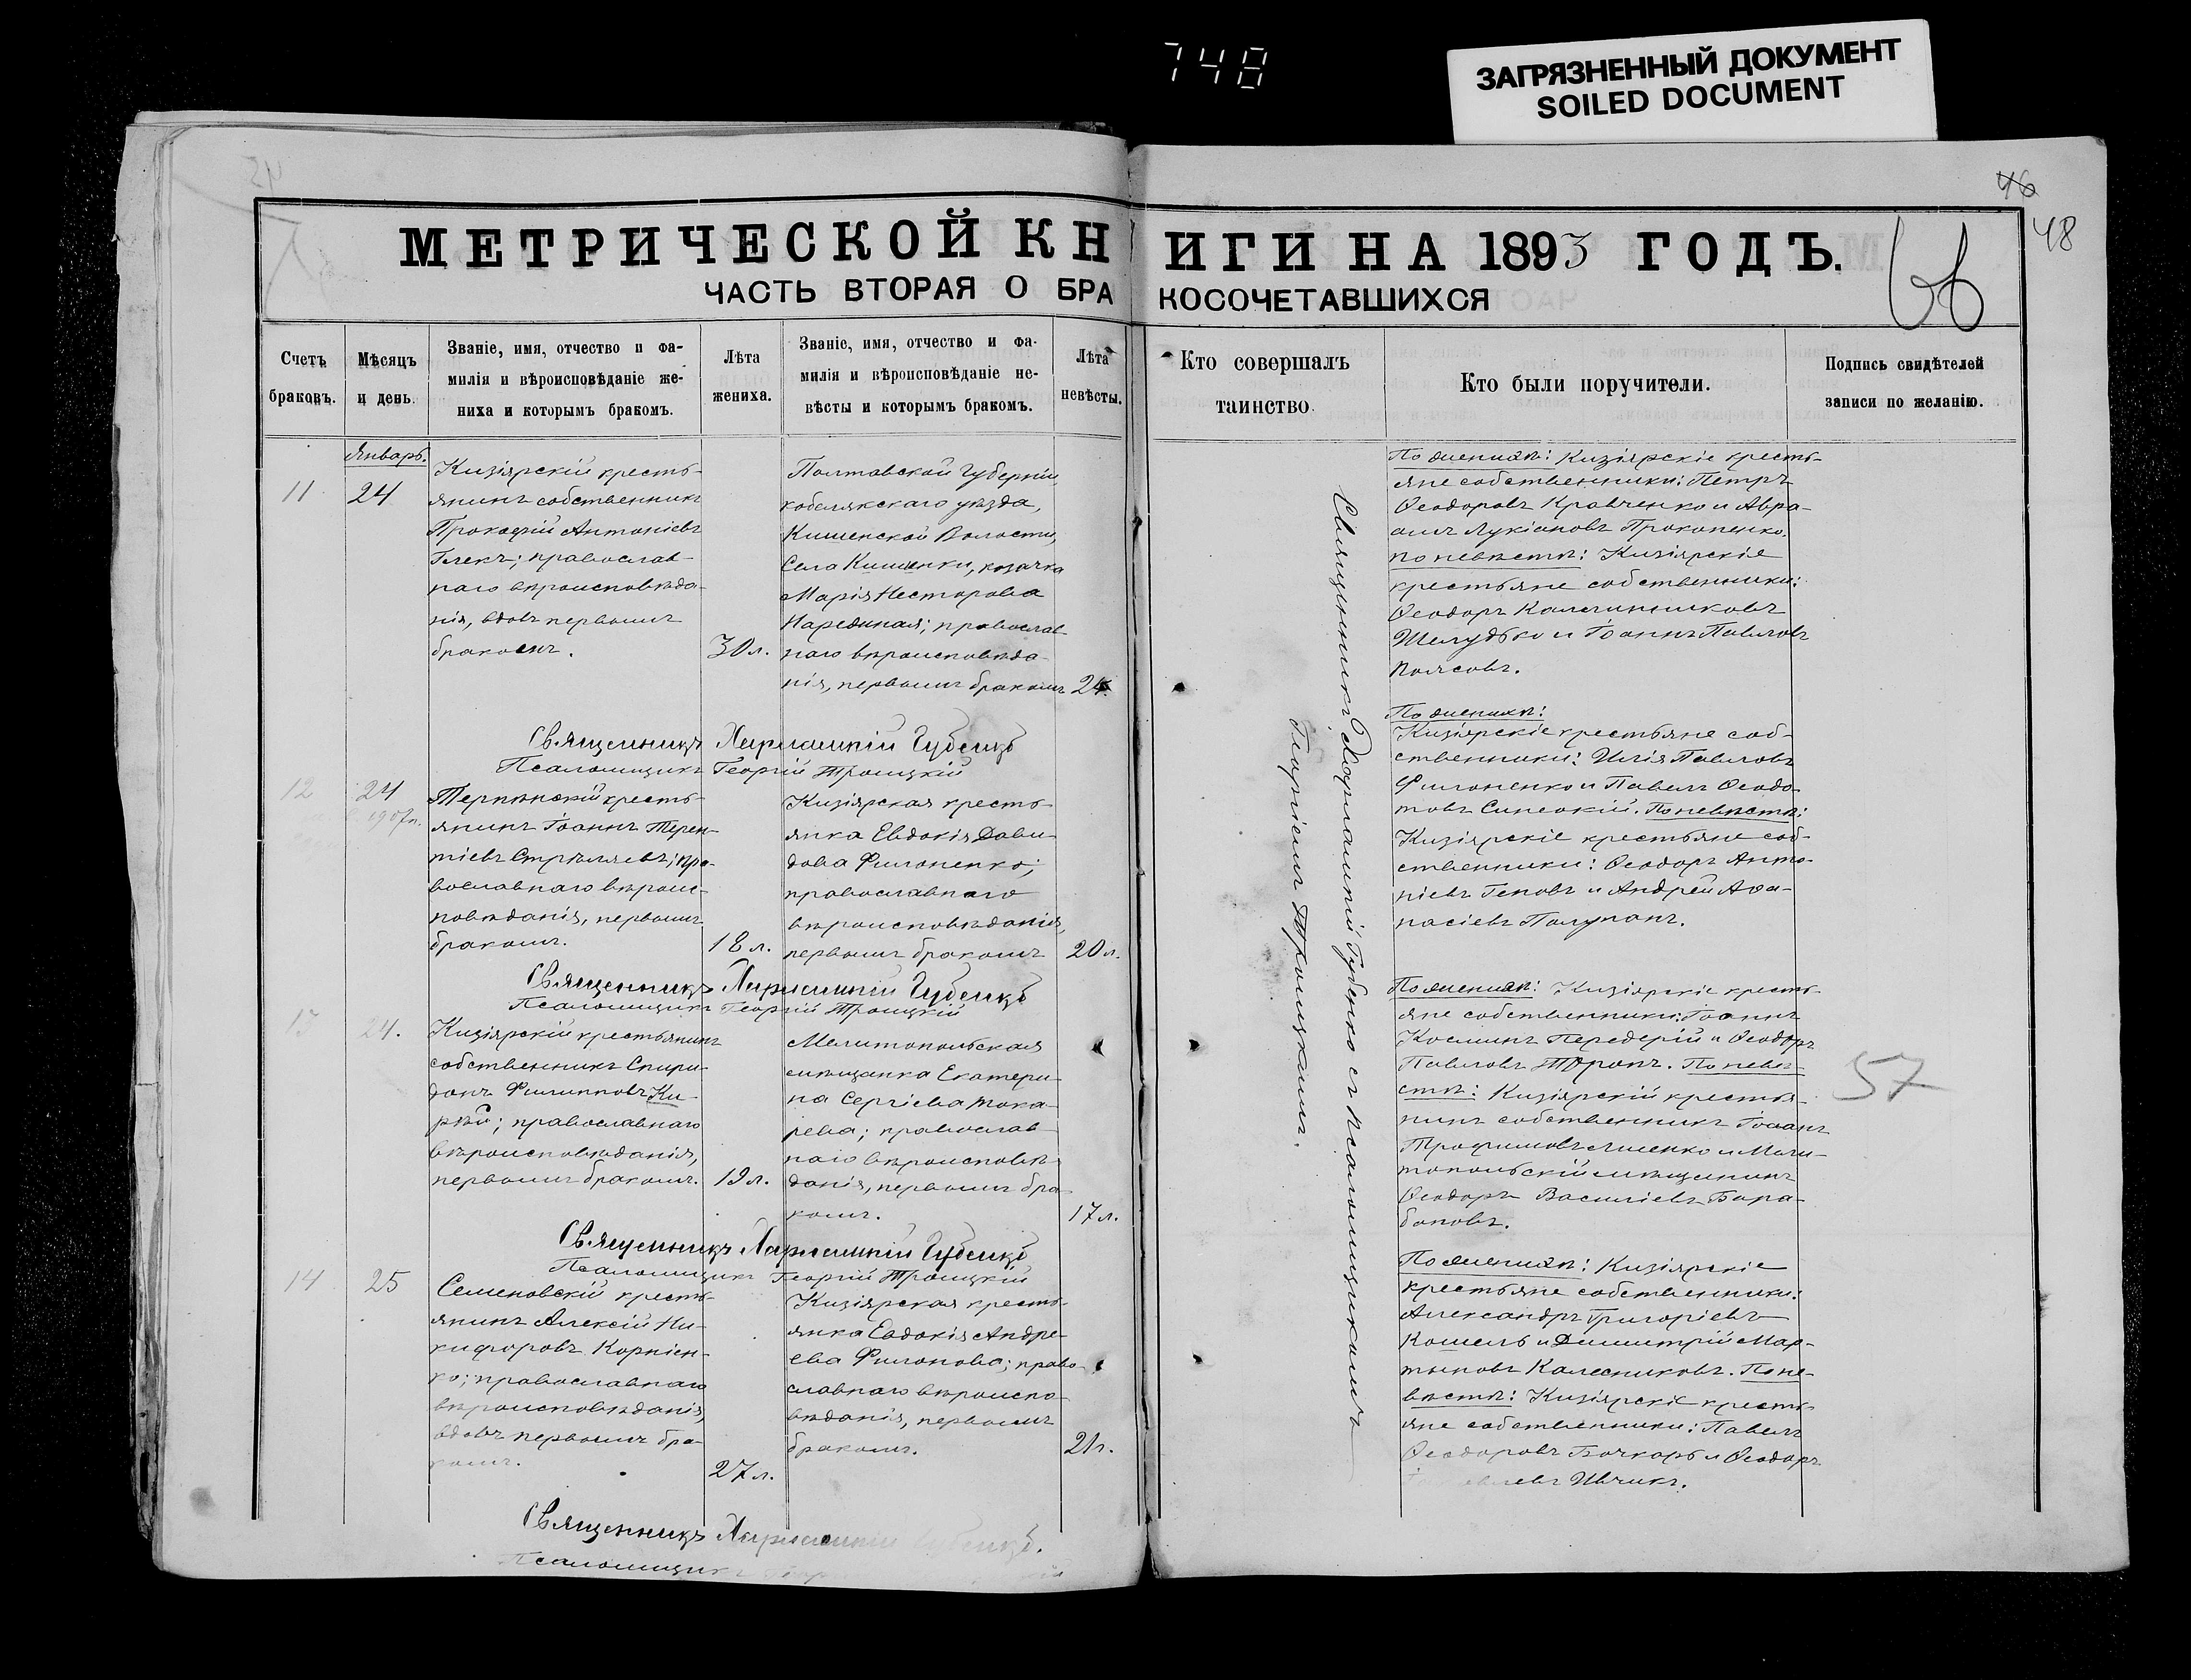 748
ЗАГРЯЗНЕННЫЙ ДОКУМЕНТ
SOILED DOCUMENT
46
48
МЕТРИЧЕСКОЙ КНИГИ НА 1893 ГОДЪ.
ЧАСТЬ ВТОРАЯ О БРАКОСОЧЕТАВШИХСЯ
Счетъ
браковъ.
Мѣсяцъ
и день.
Званіе, имя, отчество и фа-
милія и вѣроисповѣданіе же-
ниха и которымъ бракомъ.
Лѣта
жениха.
Званіе, имя, отчество и фа-
милія и вѣроисповѣданіе не-
вѣсты и которымъ бракомъ.
Лѣта
невѣсты.
Кто совершалъ
таинство.
Кто были поручители.
Подпись свидѣтелей
записи по желанію.
Январь.
11
24
Кизіярскій кресть-
янинъ собственникъ
Прокофій Антоніевъ
Глекъ; православ-
наго вѣроисповѣда-
нія, вдовъ первымъ
бракомъ.
30 л.
Полтавской Губерніи,
кобелякскаго уѣзда,
Кишенской Волости,
Села Кишенки, козачка
Марія Несторова
православ-
наго вѣроисповѣда-
нія, первымъ бракомъ
24.
По женихѣ: Кизіярскіе кресть-
яне собственники: Петръ
Ѳеодоровъ Кравченко и Авра-
амъ Лукіановъ Прокопенко.
по невѣстѣ: Кизіярскіе
крестьяне собственники:
Ѳеодоръ Калинниковъ
Шелудько и Іоаннъ Павловъ
Поясовъ.
Священникъ Харлампій Губенко
Псаломщикъ Георгій Троицкій
12
24
1907 г.
Терпѣнскій кресть-
янинъ Іоаннъ Терен-
тіевъ Стрѣляевъ; пра-
вославнаго вѣроис-
повѣданія, первымъ
бракомъ.
18 л.
Кизіярская кресть-
янка Евдокія Дави-
дова Филоненко;
православнаго
вѣроисповѣданія,
первымъ бракомъ
20 л.
По женихѣ:
Кизіярскіе крестьяне соб-
ственники: Илія Павловъ
Филоненко и Павелъ Ѳеодо-
товъ Синеокій. По невѣстѣ:
Кизіярскіе крестьяне соб-
ственники: Ѳеодоръ Анто-
ніевъ Геновъ и Андрей Аѳа-
насіевъ Полупанъ.
Священникъ Харлампій Губенко
Псаломщикъ Георгій Троицкій
13
24.
Кизіярскій крестьянинъ
собственникъ Спири-
донъ Филипповъ Ки-
рѣй; православнаго
вѣроисповѣданія,
первымъ бракомъ.
19 л.
Мелитопольская
мѣщанка Екатери-
на Сергіева Тока-
рева; православ-
наго вѣроисповѣ-
данія, первымъ бра-
комъ.
17 л.
По женихѣ: Кизіярскіе кресть-
яне собственники: Іоаннъ
Косминъ Передерій и Ѳеодоръ
Павловъ Тронъ. По невѣ-
стѣ: Кизіярскій крестья-
нинъ собственникъ Іоаннъ
Трофимовъ Лисенко и Мели-
топольскій мѣщанинъ
Ѳеодоръ Василіевъ Бара-
бановъ.
57
Священникъ Харлампій Губенко
Псаломщикъ Георгій Троицкій
14
25
Семеновскій кресть-
янинъ Алексій Ни-
кифоровъ Корніен-
ко; православнаго
вѣроисповѣданія,
вдовъ первымъ бра-
комъ.
27 л.
Кизіярская кресть-
янка Евдокія Андре-
ева Филонова; право-
славнаго вѣроиспо-
вѣданія, первымъ
бракомъ.
21 г.
По женихѣ: Кизіярскіе
крестьяне собственники:
Александръ Григоріевъ
Кошель и Димитрій Мар-
тыновъ Калесниковъ. По не-
вѣстѣ: Кизіярскіе кресть-
яне собственники: Павелъ
Ѳеодоровъ Бочкарь и Ѳеодоръ
Ивчикъ.
Священникъ Харлампій Губенко.
Псаломщикъ
Священникъ Харлампій Губенко с псаломщикомъ
Георгіемъ Троицкимъ.